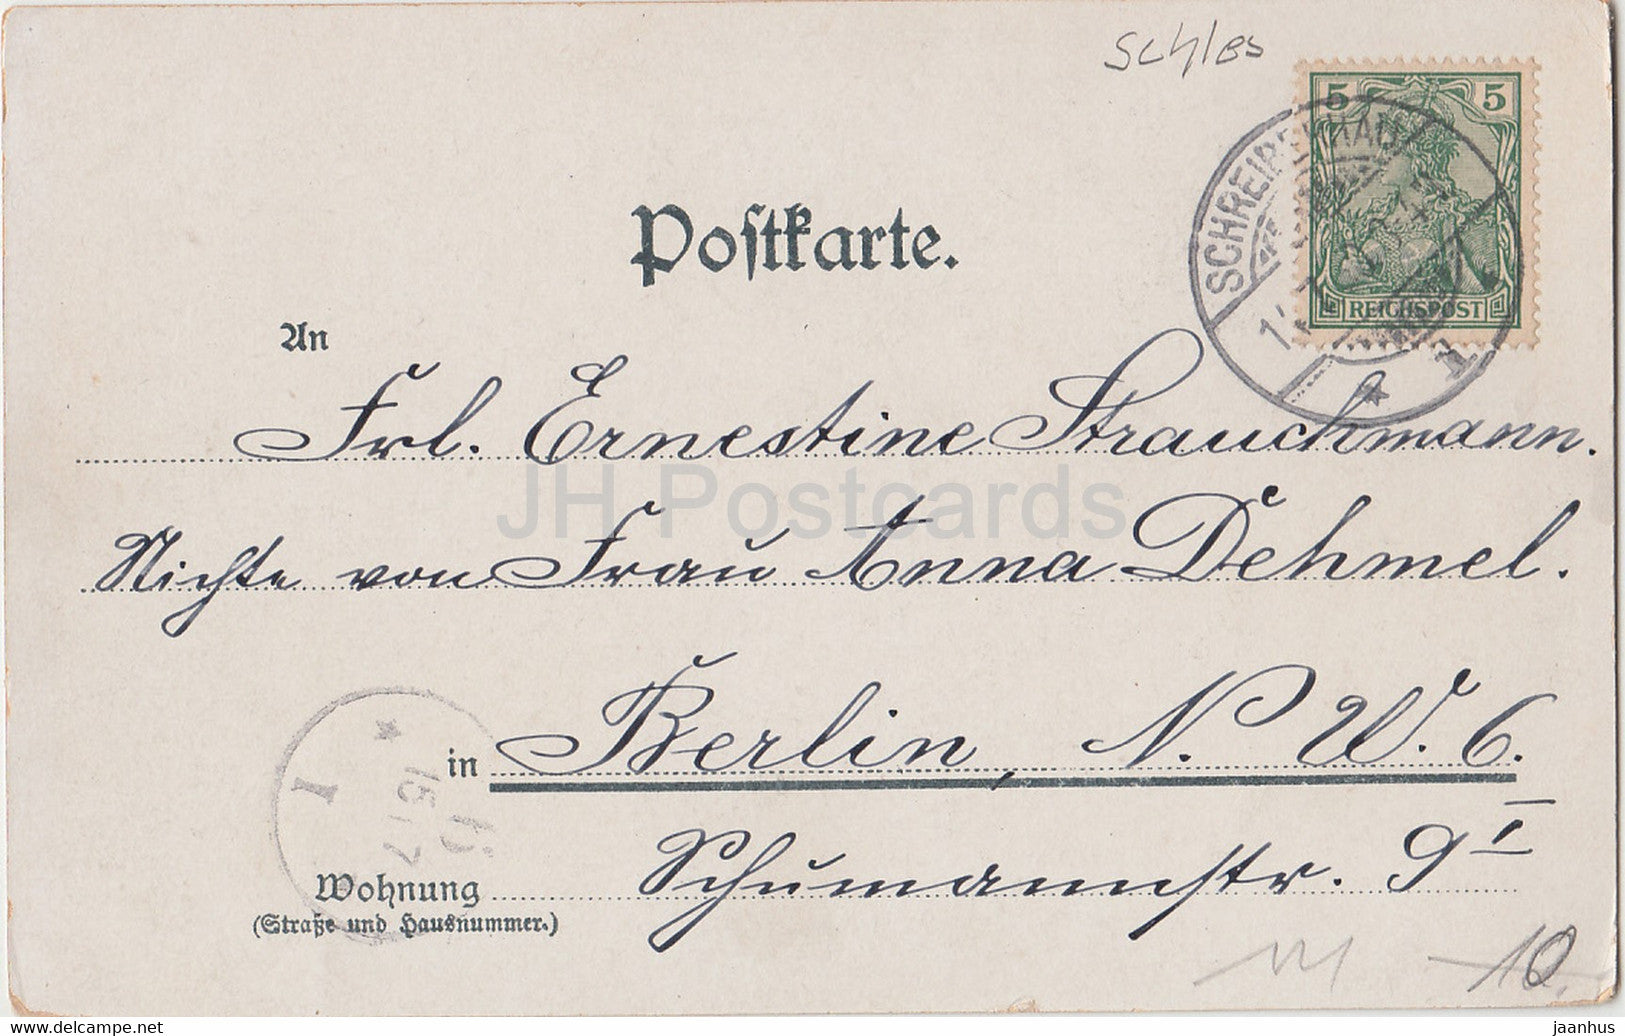 Schles
5 5
SCHREIBERHAU
REICHSPOST
1
Postkarte.
An
Frl. Ernestine Strauchmann.
Nichte von Frau Anna Dehmel.
JH Postcards
in Berlin, N. W. 6.
Wohnung Schumannstr. 9 I
(Straße und Hausnummer.)
I
15 7
10.
jaanhus
delcampe.net